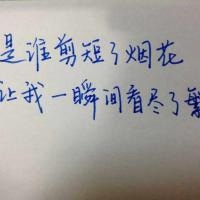 是谁剪短了烟花
让我一瞬间看尽了繁